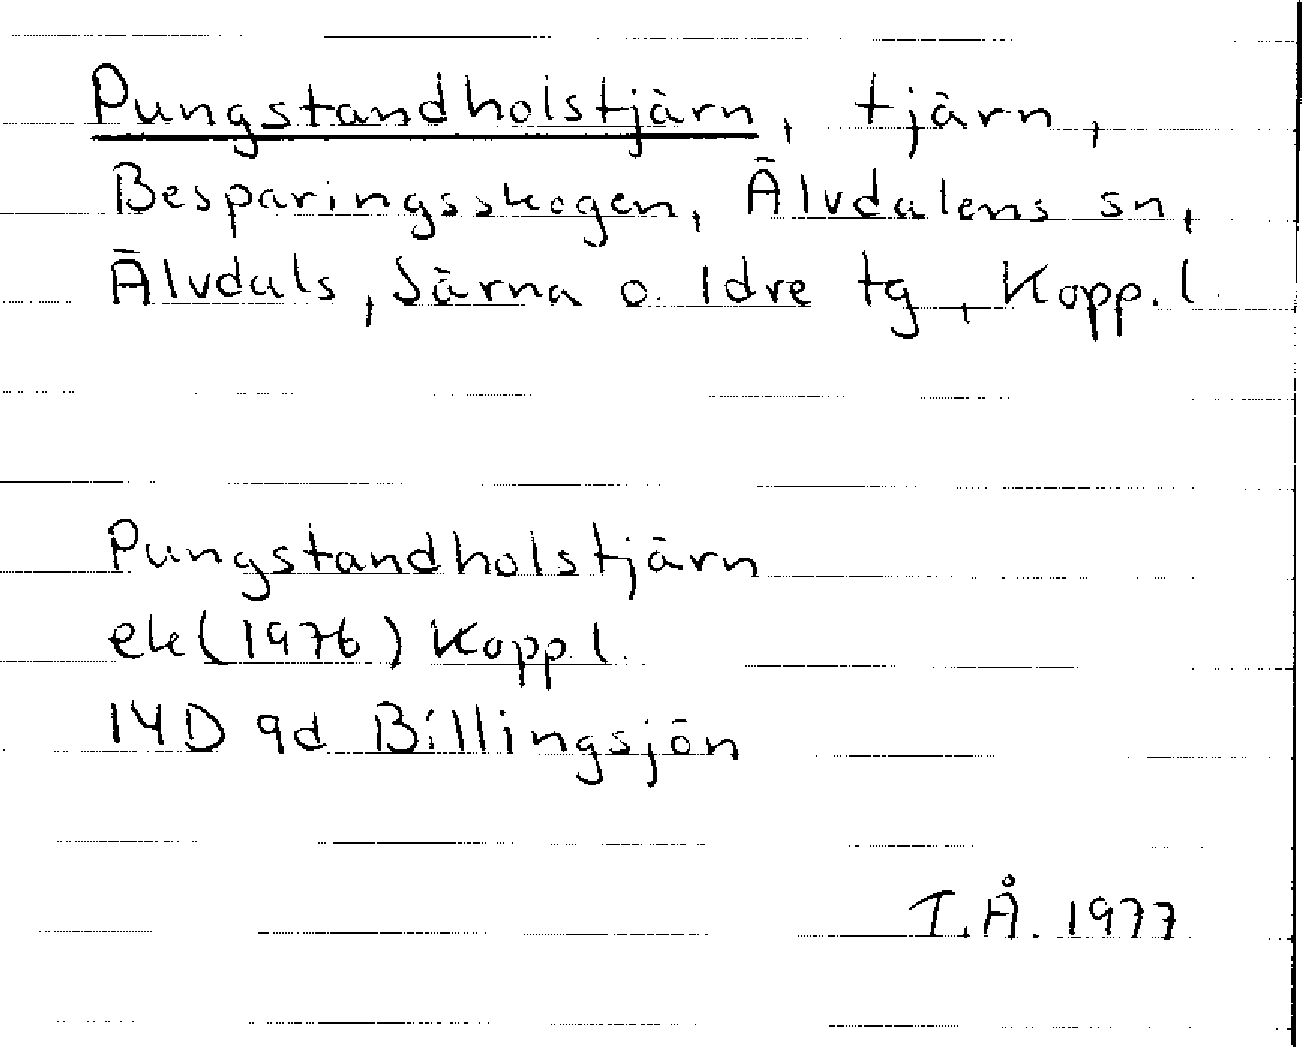 Pungstandholstjärn, tjärn,
Besparingsskogen, Älvdalens sn,
Älvdals, Särna o. Idre tg, Kopp. l
Pungstandholstjärn
ek (1976) Kopp. l.
14D 9d Billingsjön
I.Å. 1977